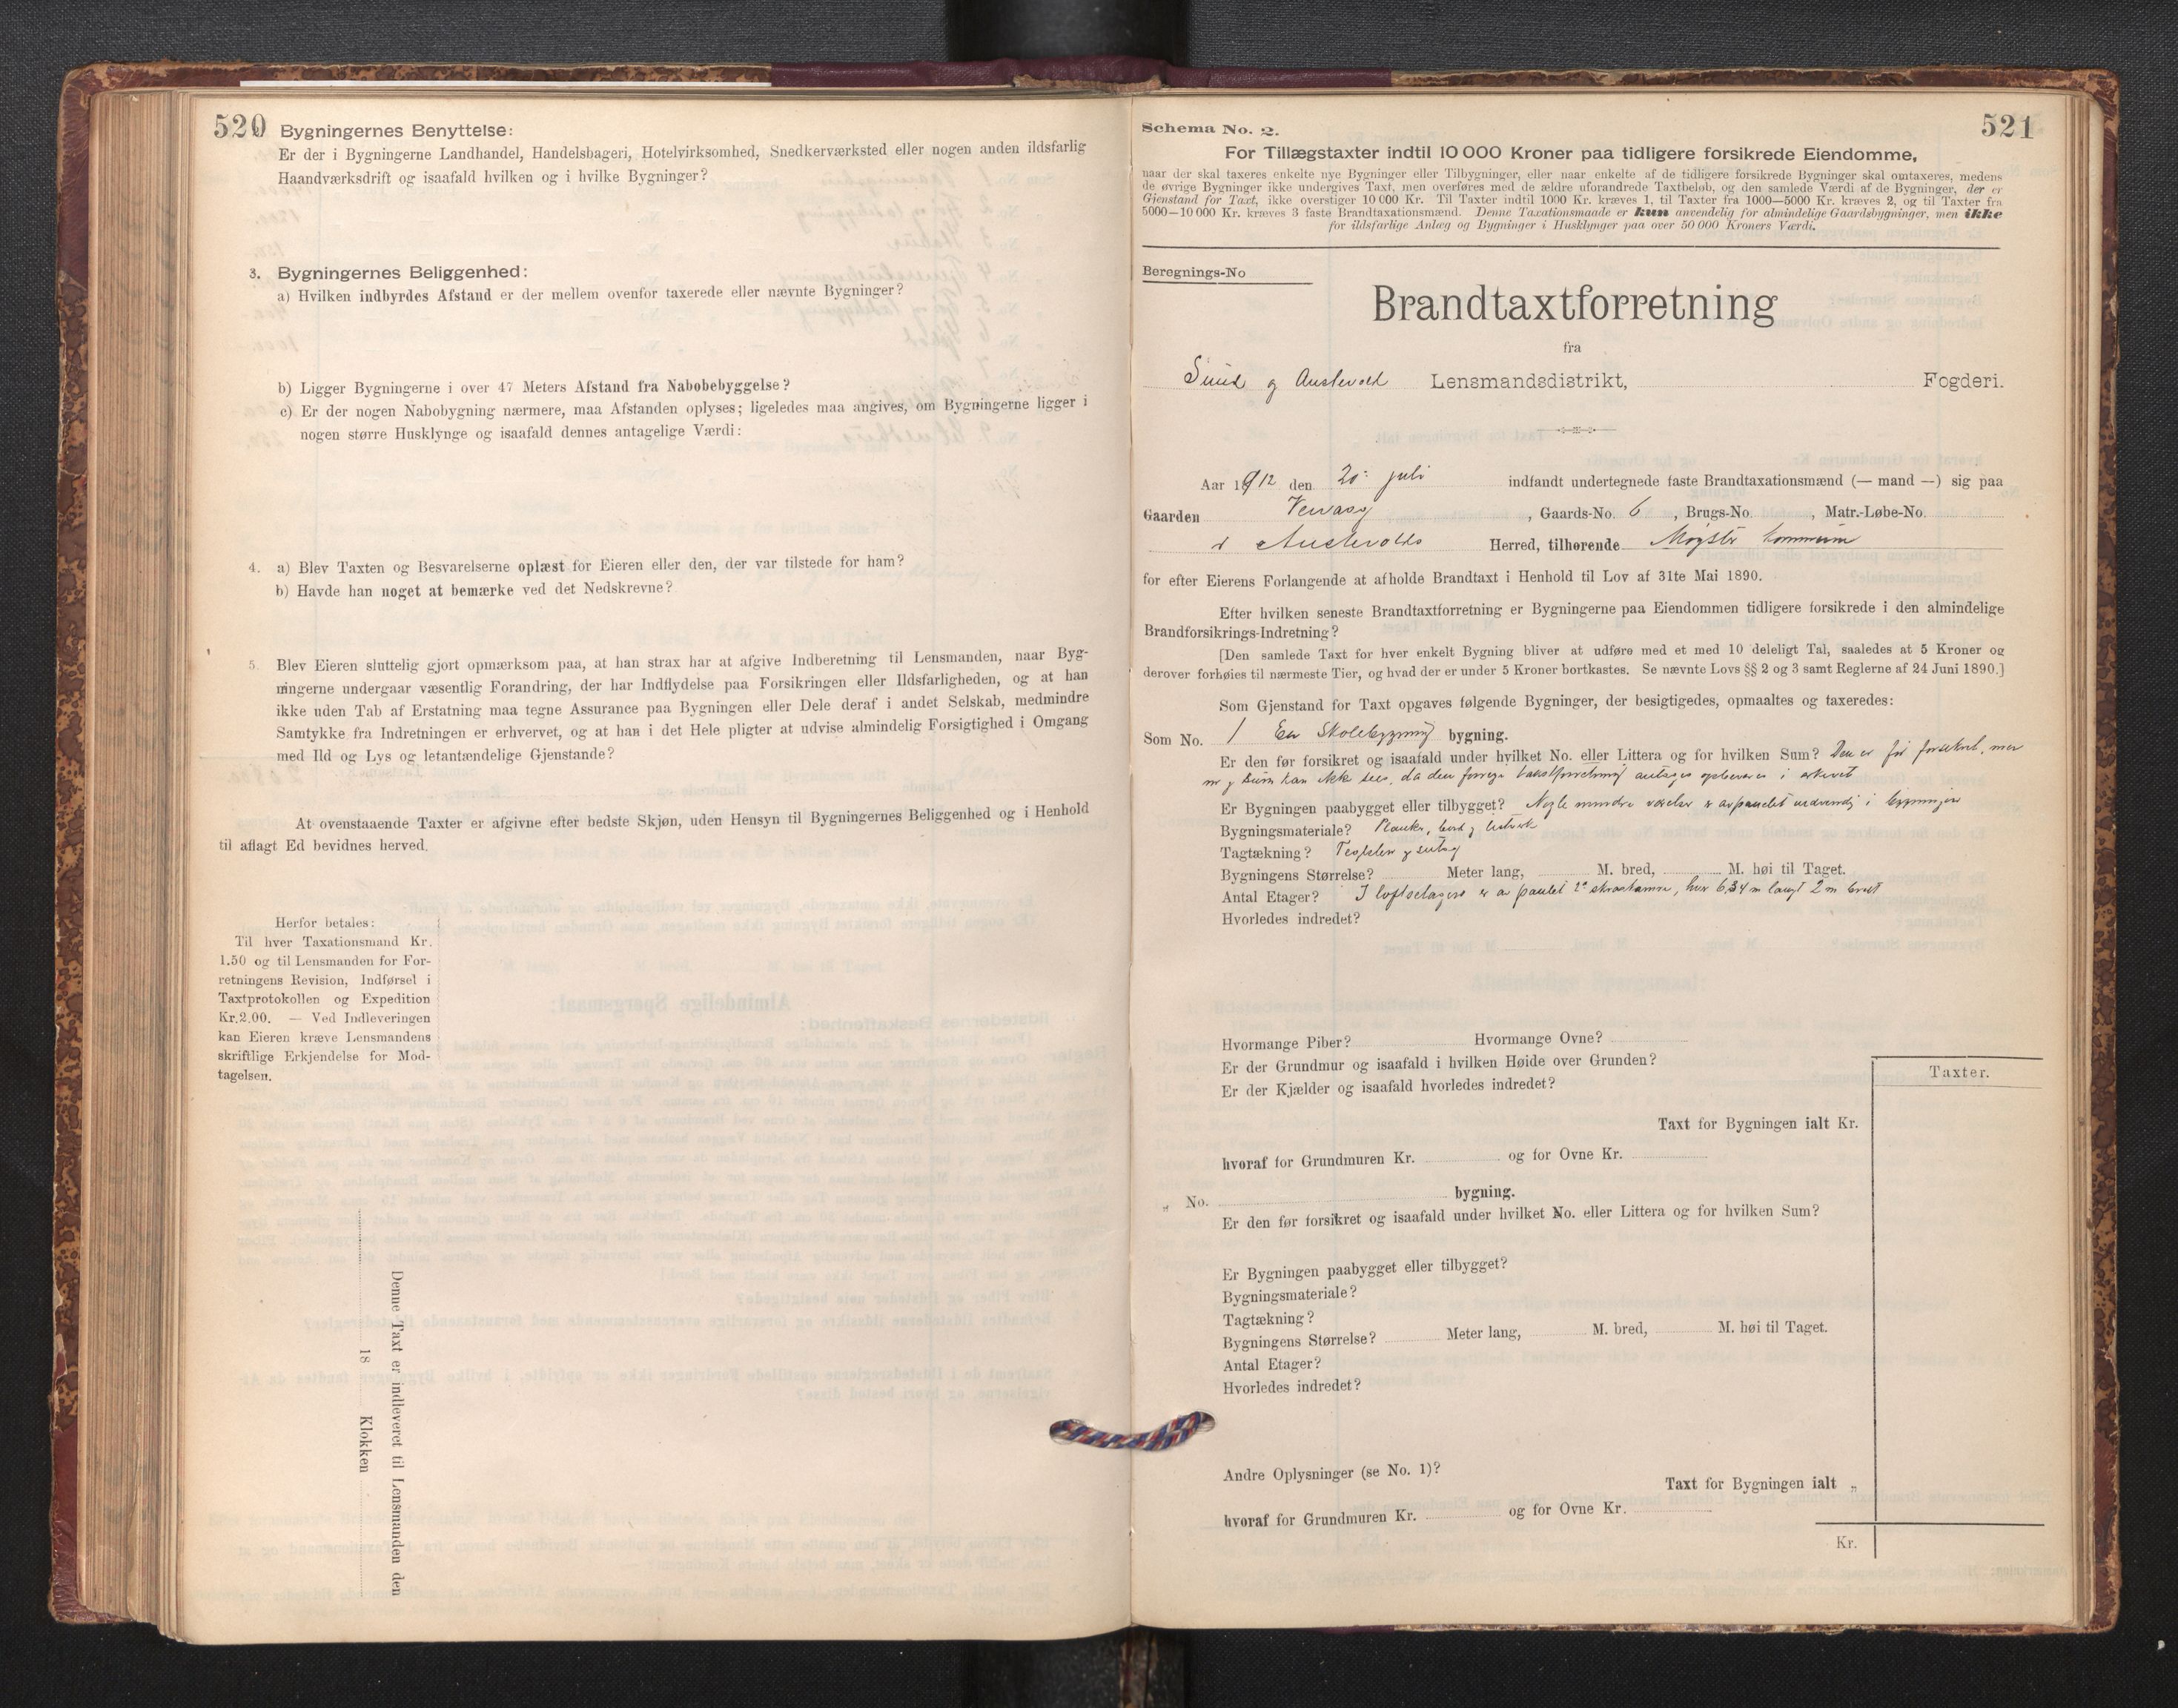 520
Bygningernes Benyttelse:
Er der i Bygningerne Landhandel, Handelsbageri, Hotelvirksomhed, Snedkerværksted eller nogen anden ildsfarlig
Haandværksdrift og isaafald hvilken og i hvilke Bygninger?
3. Bygningernes Beliggenhed:
a) Hvilken indbyrdes Afstand er der mellem ovenfor taxerede eller nævnte Bygninger?
b) Ligger Bygningerne i over 47 Meters Afstand fra Nabobebyggelse?
c) Er der nogen Nabobygning nærmere, maa Afstanden oplyses; ligeledes maa angives, om Bygningerne ligger i
nogen større Husklynge og isaafald dennes antagelige Værdi:
4. a) Blev Taxten og Besvarelserne oplæst for Eieren eller den, der var tilstede for ham?
b) Havde han noget at bemærke ved det Nedskrevne?
5. Blev Eieren sluttelig gjort opmærksom paa, at han strax har at afgive Indberetning til Lensmanden, naar Byg-
ningerne undergaar væsentlig Forandring, der har Indflydelse paa Forsikringen eller Ildsfarligheden, og at han
ikke uden Tab af Erstatning maa tegne Assurance paa Bygningen eller Dele deraf i andet Selskab, medmindre
Samtykke fra Indretningen er erhvervet, og at han i det Hele pligter at udvise almindelig Forsigtighed i Omgang
med Ild og Lys og letantændelige Gjenstande?
At ovenstaaende Taxter er afgivne efter bedste Skjøn, uden Hensyn til Bygningernes Beliggenhed og i Henhold
til aflagt Ed bevidnes herved.
Herfor betales:
Til hver Taxationsmand Kr.
1.50 og til Lensmanden for For-
retningens Revision, Indførsel i
Taxtprotokollen og Expedition
Kr.2.00. — Ved Indleveringen
kan Eieren kræve Lensmandens
skriftlige Erkjendelse for Mod-
tagelsen.
Denne Taxt er indleveret til Lensmanden den
18 Klokken
521
Schema No. 2.
For Tillægstaxter indtil 10 000 Kroner paa tidligere forsikrede Eiendomme,
naar der skal taxeres enkelte nye Bygninger eller Tilbygninger, eller naar enkelte af de tidligere forsikrede Bygninger skal omtaxeres, medens
de øvrige Bygninger ikke undergives Taxt, men overføres med de ældre uforandrede Taxtbeløb, og den samlede Værdi af de Bygninger, der er
Gjenstand for Taxt, ikke overstiger 10 000 Kr. Til Taxter indtil 1000 Kr. kræves 1, til Taxter fra 1000—5000 Kr. kræves 2, og til Taxter fra
5000—10 000 Kr. kræves 3 faste Brandtaxationsmænd. Denne Taxationsmaade er kun anvendelig for almindelige Gaardsbygninger, men ikke
for ildsfarlige Anlæg og Bygninger i Husklynger paa over 50 000 Kroners Værdi.
Beregnings-No
Brandtaxtforretning
fra
Sund og Austevold Lensmandsdistrikt, Fogderi.
Aar 1912 den 20: juli indfandt undertegnede faste Brandtaxationsmænd (— mand —) sig paa
Gaarden , Gaards-No. 6 , Brugs-No. , Matr.-Løbe-No.
i Austevolds Herred, tilhørende Møgster kommune
for efter Eierens Forlangende at afholde Brandtaxt i Henhold til Lov af 31te Mai 1890.
Efter hvilken seneste Brandtaxtforretning er Bygningerne paa Eiendommen tidligere forsikrede i den almindelige
Brandforsikrings-Indretning?
[Den samlede Taxt for hver enkelt Bygning bliver at udføre med et med 10 deleligt Tal, saaledes at 5 Kroner og
derover forhøies til nærmeste Tier, og hvad der er under 5 Kroner bortkastes. Se nævnte Lovs §§ 2 og 3 samt Reglerne af 24 Juni 1890.]
Som Gjenstand for Taxt opgaves følgende Bygninger, der besigtigedes, opmaaltes og taxeredes:
Som No. 1 En Skolebygning bygning.
Er den før forsikret og isaafald under hvilket No. eller Littera og for hvilken Sum? Den er før forsikret, men
nr og sum kan ikke sees, da den forrige takstforretning antages opbevares i arkivet
Er Bygningen paabygget eller tilbygget? Nogle mindre værelser er avpanelet indvendig i bygningen
Bygningsmateriale? Planker, bord og
Tagtækning?
Bygningens Størrelse? Meter lang, M. bred, M. høi til Taget.
Antal Etager? I loftsetagen er av panelet 2 skraakamre, hver 6,34 m langt 2 m bredt
Hvorledes indredet?
Hvormange Piber? Hvormange Ovne?
Er der Grundmur og isaafald i hvilken Høide over Grunden?
Er der Kjælder og isaafald hvorledes indredet?
Taxter.
Taxt for Bygningen ialt Kr.
hvoraf for Grundmuren Kr. og for Ovne Kr.
„ No. bygning.
Er den før forsikret og isaafald under hvilket No. eller Littera og for hvilken Sum?
Er Bygningen paabygget eller tilbygget?
Bygningsmateriale?
Tagtækning?
Bygningens Størrelse? Meter lang, M. bred, M. høi til Taget.
Antal Etager?
Hvorledes indredet?
Andre Oplysninger (se No. 1)?
Taxt for Bygningen ialt „
hvoraf for Grundmuren Kr. og for Ovne Kr.
Kr.